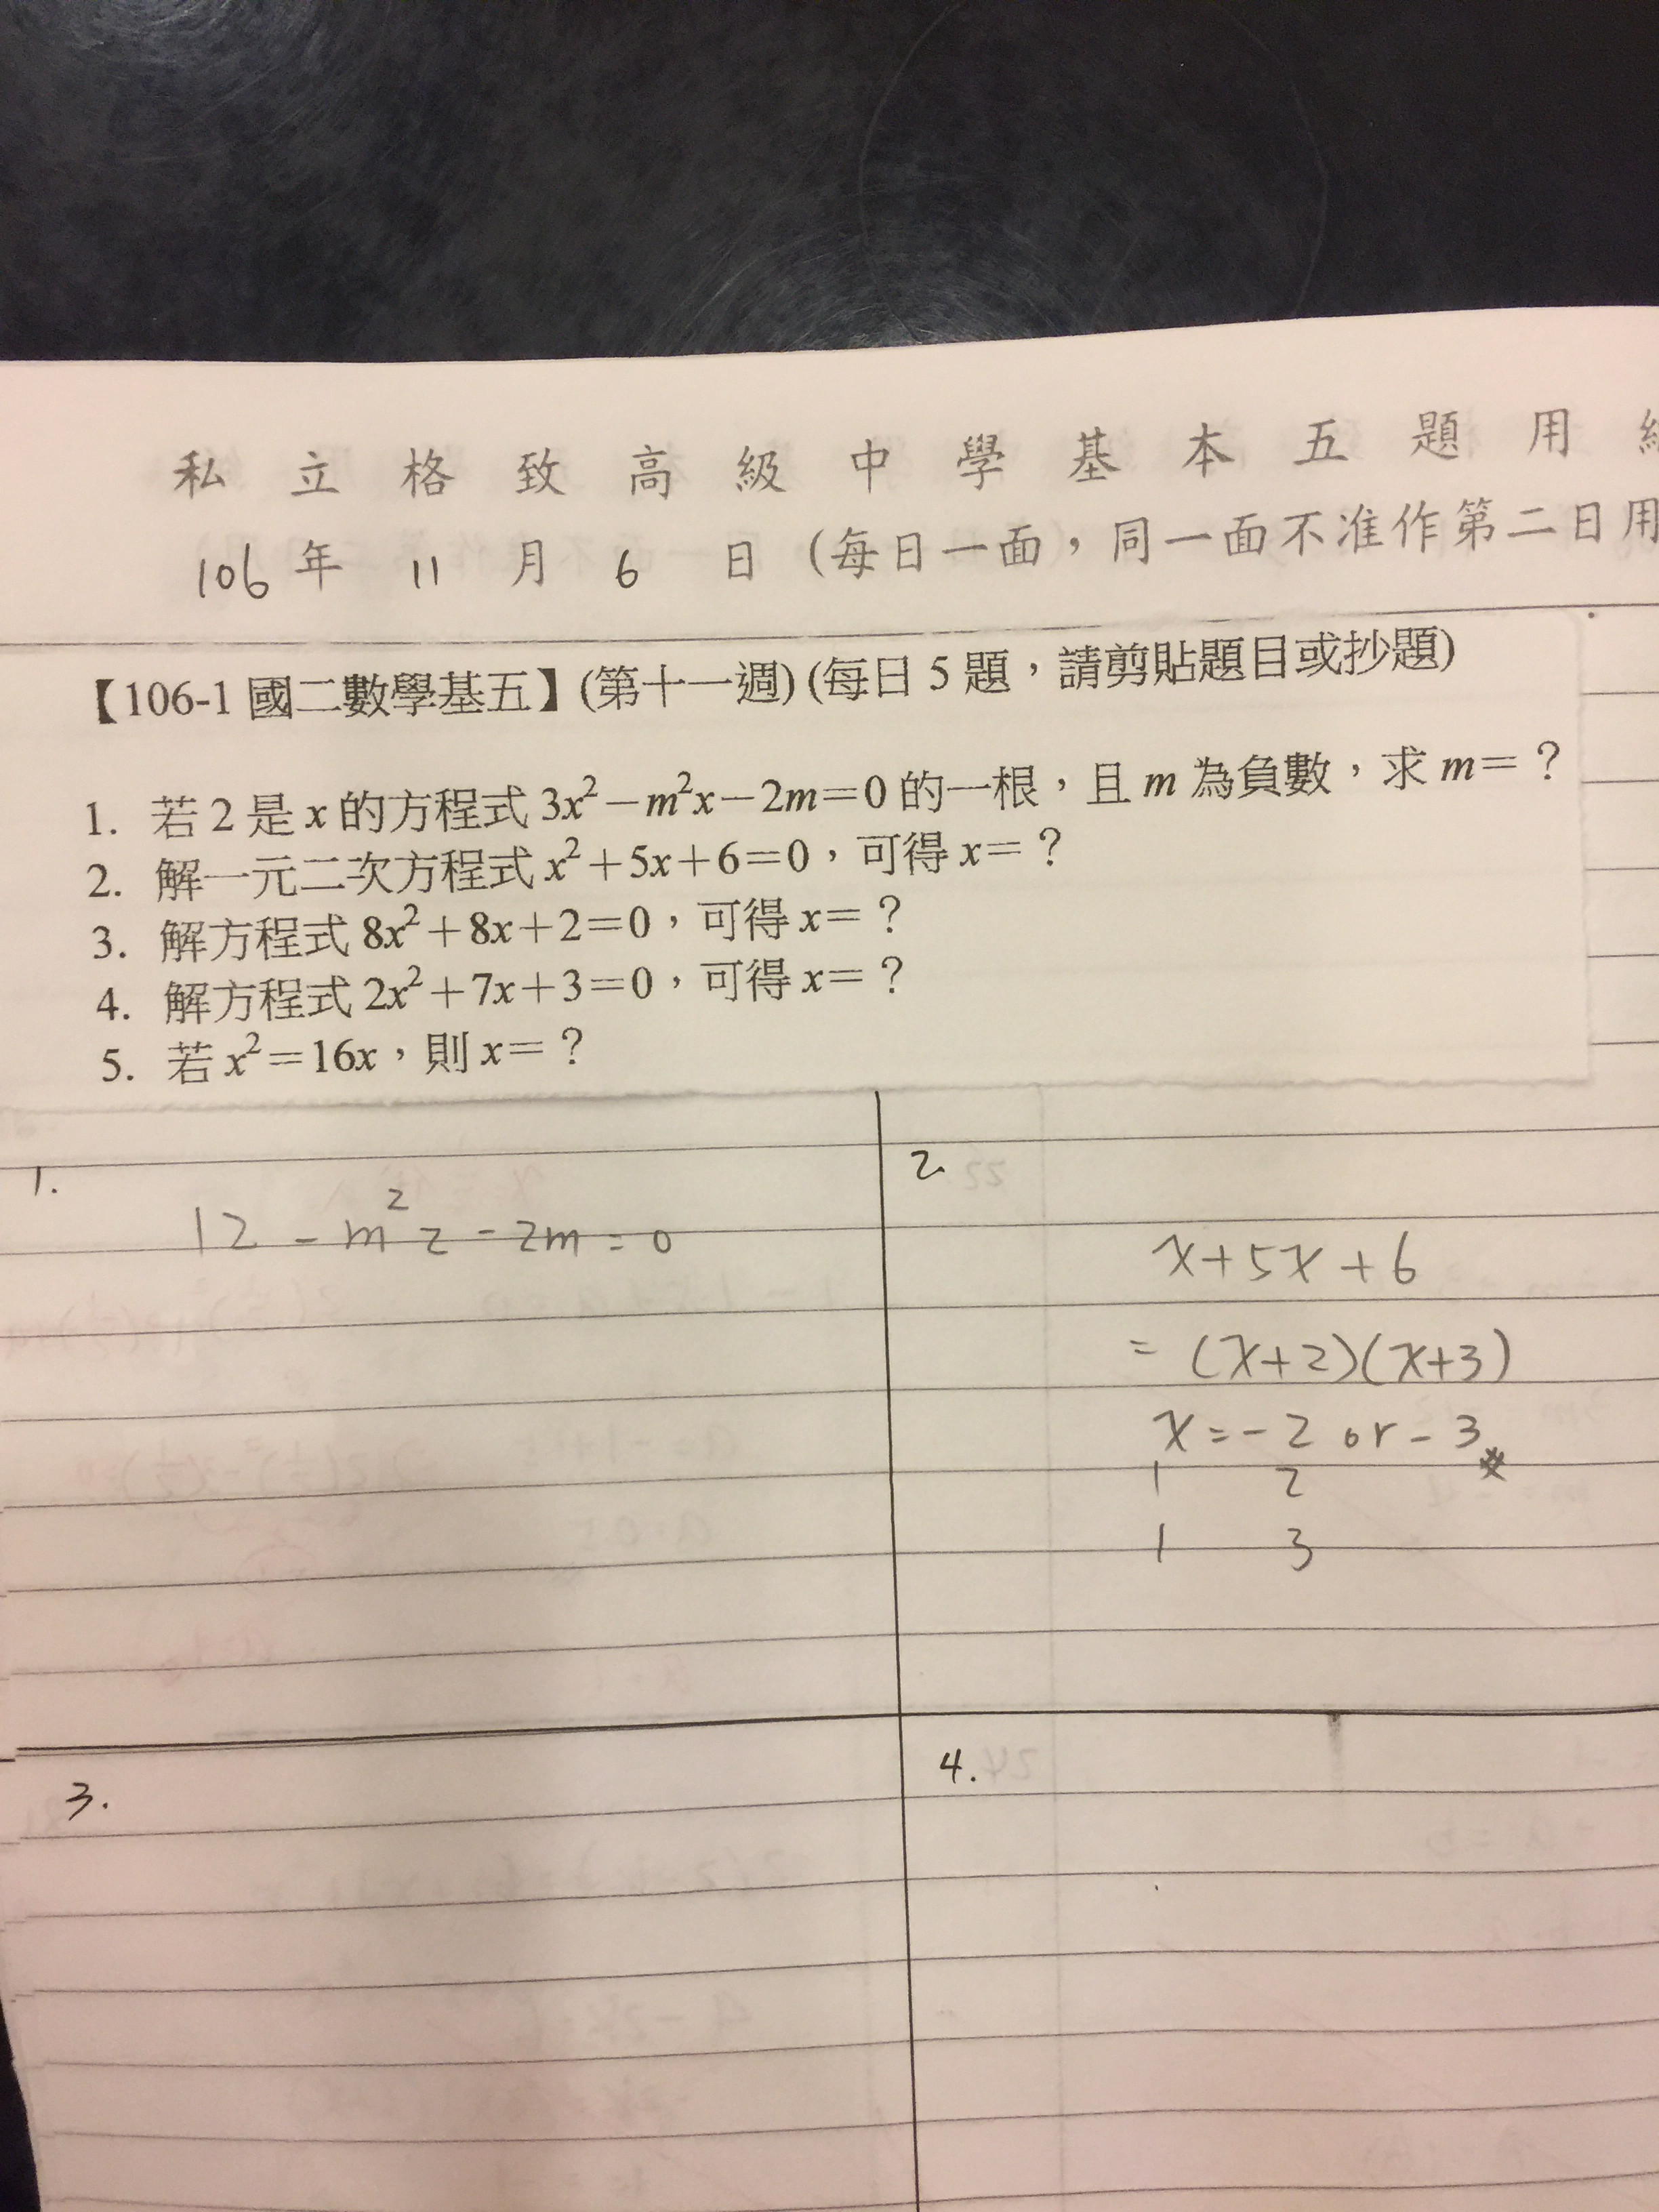 私立格致高級中學基本五題用
106年 11 月 6 日 (每日一面，同一面不准作第二日用
【106-1 國二數學基五】(第十一週) (每日 5 題，請剪貼題目或抄題)
1. 若 2 是 x 的方程式 3x²－m²x－2m＝0 的一根，且 m 為負數，求 m＝？
2. 解一元二次方程式 x²＋5x＋6＝0，可得 x＝？
3. 解方程式 8x²＋8x＋2＝0，可得 x＝？
4. 解方程式 2x²＋7x＋3＝0，可得 x＝？
5. 若 x²＝16x，則 x＝？
1.
12 - m²2 - 2m = 0
2.
x+5x+6
= (x+2)(x+3)
x = -2 or -3
1 2
1 3
3.
4.